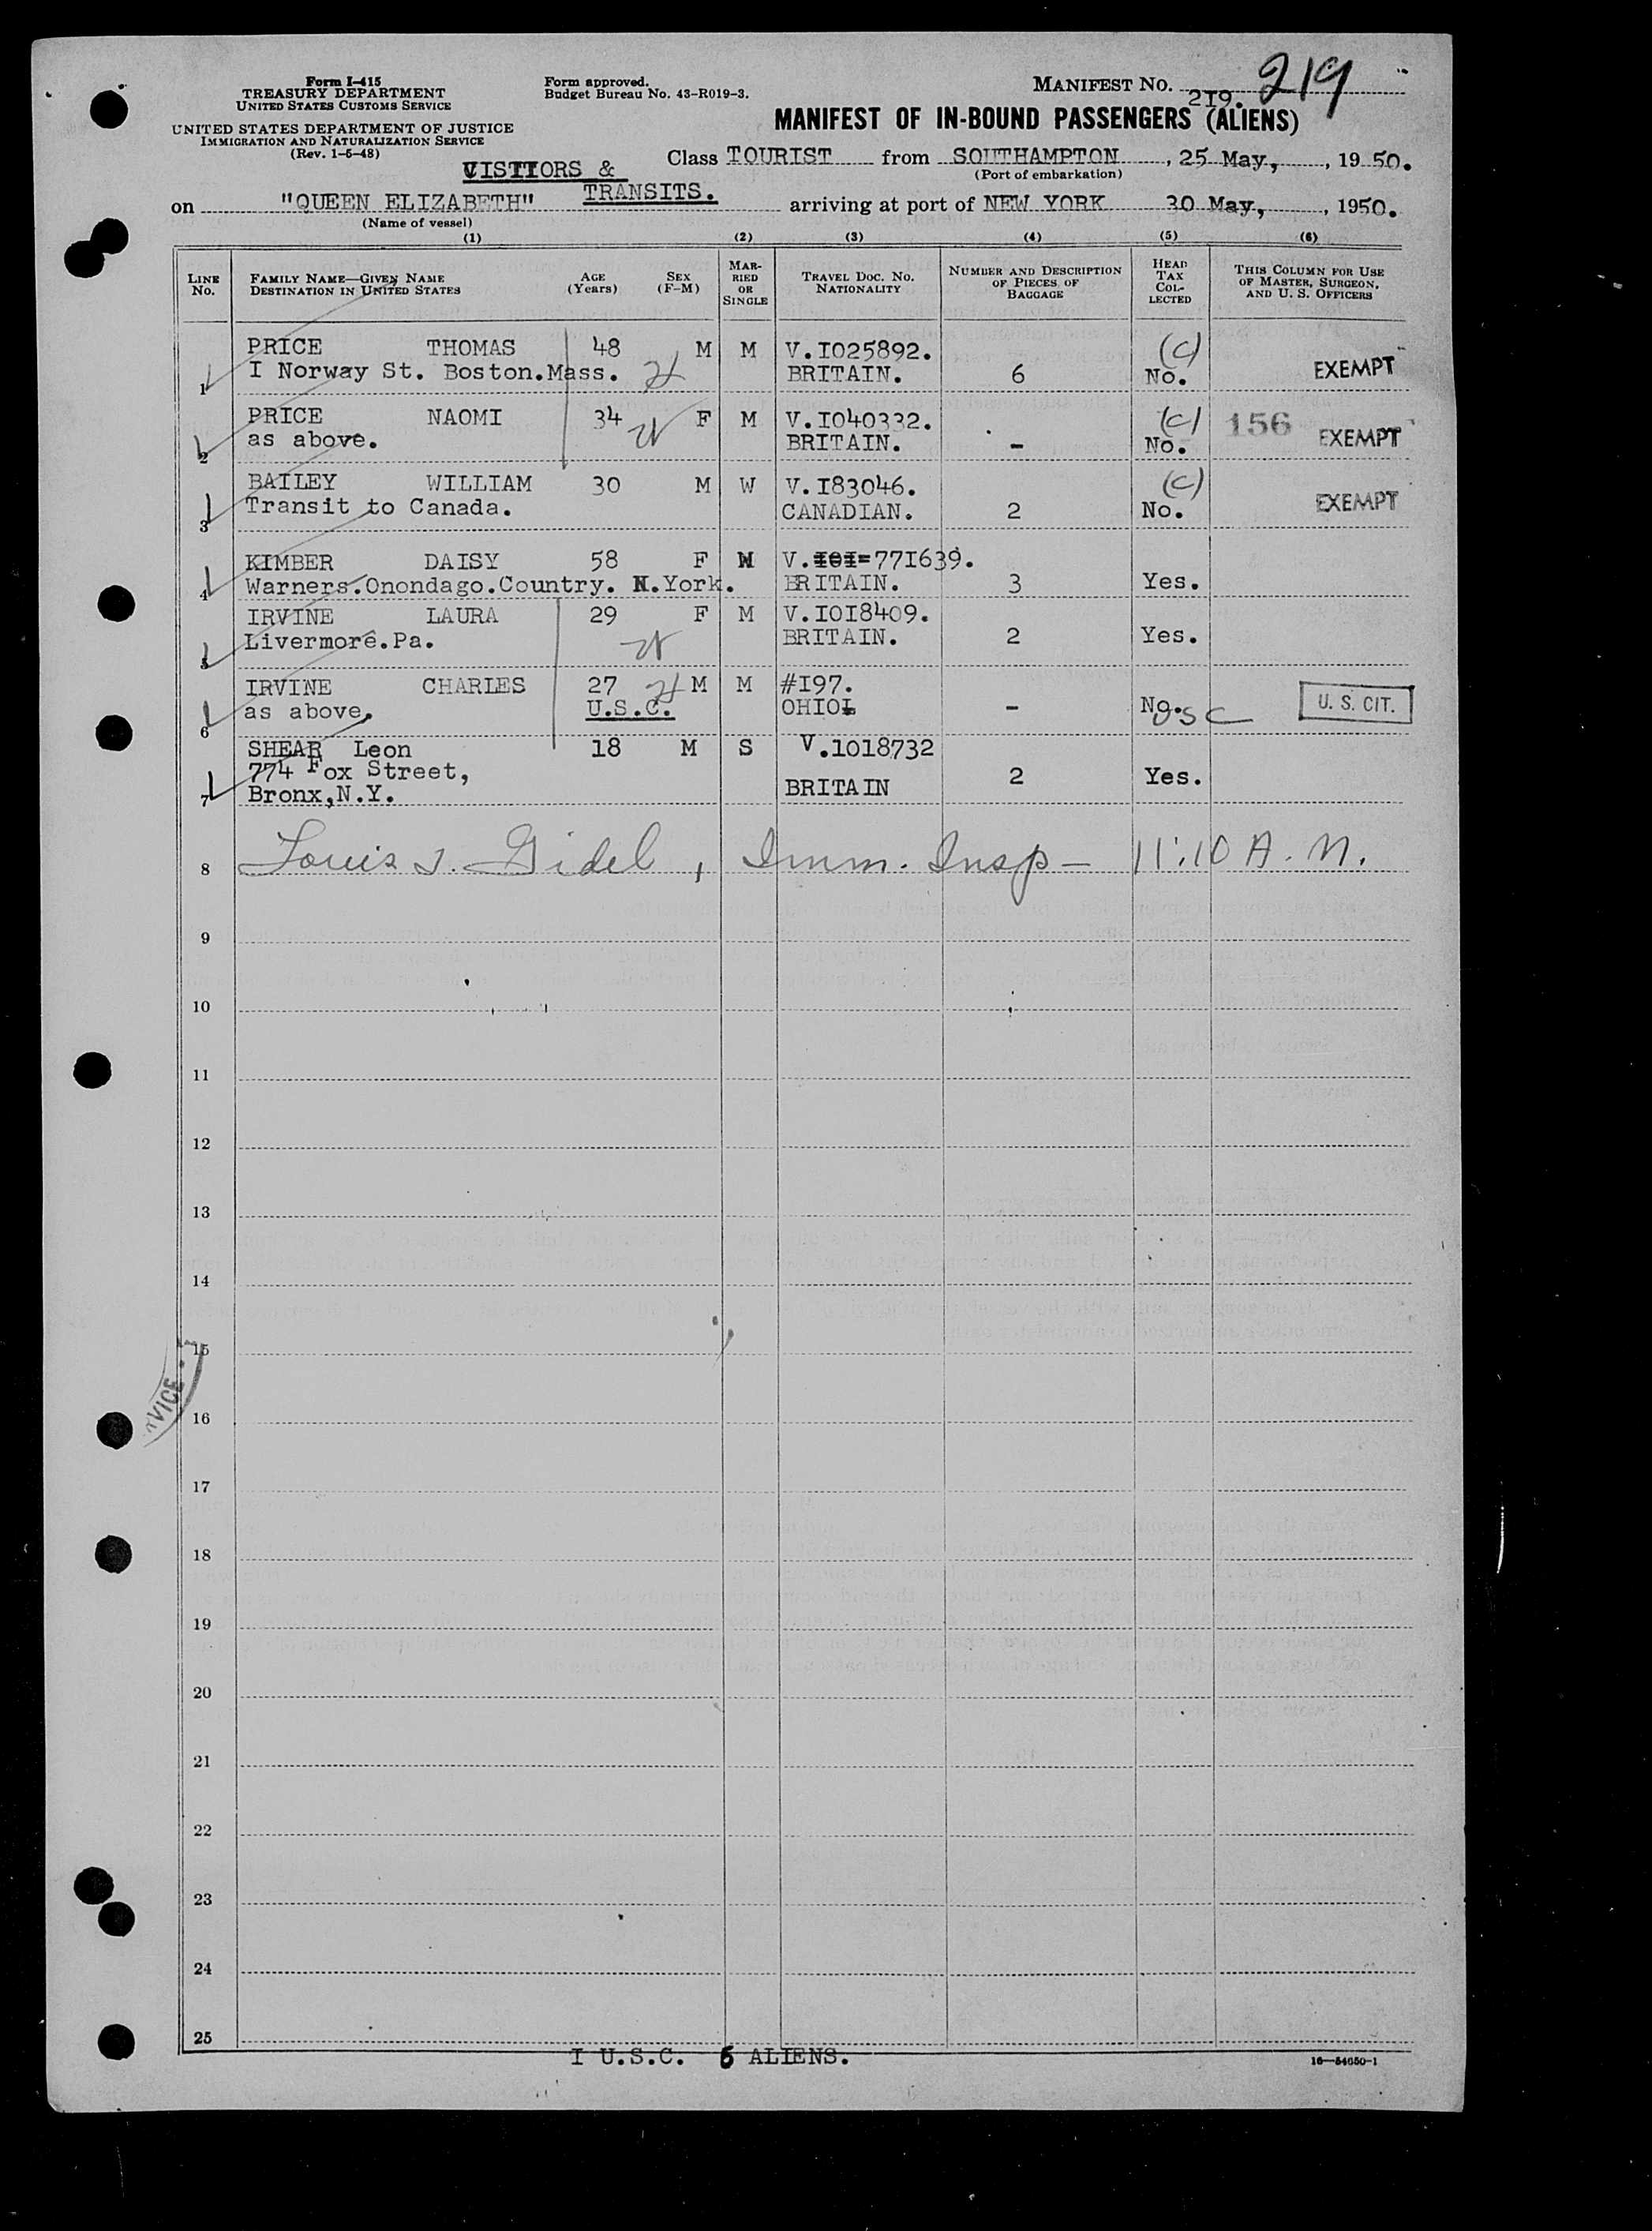 Form I-415
TREASURY DEPARTMENT
UNITED STATES CUSTOMS SERVICE
UNITED STATES DEPARTMENT OF JUSTICE
IMMIGRATION AND NATURALIZATION SERVICE
(Rev. 1-6-48)
Form approved.
Budget Bureau No. 43-R019-3.
MANIFEST No. 219. 219
MANIFEST OF IN-BOUND PASSENGERS (ALIENS)
VISITORS &
TRANSITS.
Class TOURIST from SOUTHAMPTON, 25 May, 1950.
(Port of embarkation)
on "QUEEN ELIZABETH" arriving at port of NEW YORK 30 May, 1950.
(Name of vessel)
(1) (2) (3) (4) (5) (6)
LINE No. FAMILY NAME—GIVEN NAME DESTINATION IN UNITED STATES AGE (Years) SEX (F-M) MARRIED OR SINGLE TRAVEL DOC. NO. NATIONALITY NUMBER AND DESCRIPTION OF PIECES OF BAGGAGE HEAD TAX COLLECTED THIS COLUMN FOR USE OF MASTER, SURGEON, AND U. S. OFFICERS
PRICE THOMAS 48 M M V.I025892. (C)
1 I Norway St. Boston.Mass. BRITAIN. 6 No. EXEMPT
PRICE NAOMI 34 F M V.I040332. (C) 156
2 as above. BRITAIN. - No. EXEMPT
BAILEY WILLIAM 30 M W V.I83046. (C)
3 Transit to Canada. CANADIAN. 2 No. EXEMPT
KIMBER DAISY 58 F W V.I0I=771639.
4 Warners.Onondago.Country. N.York. BRITAIN. 3 Yes.
IRVINE LAURA 29 F M V.I0I8409.
5 Livermore.Pa. BRITAIN. 2 Yes.
IRVINE CHARLES 27 M M #I97.
6 as above. U.S.C. OHIO - No. USC U. S. CIT.
SHEAR Leon 18 M S V.1018732
774 Fox Street, 2 Yes.
7 Bronx,N.Y. BRITAIN
8 Louis J. Gidel, Imm. Insp - 11:10 A.M.
9
10
11
12
13
14
15
VICE
16
17
18
19
20
21
22
23
24
25
I U.S.C. 6 ALIENS.
16—54650-1